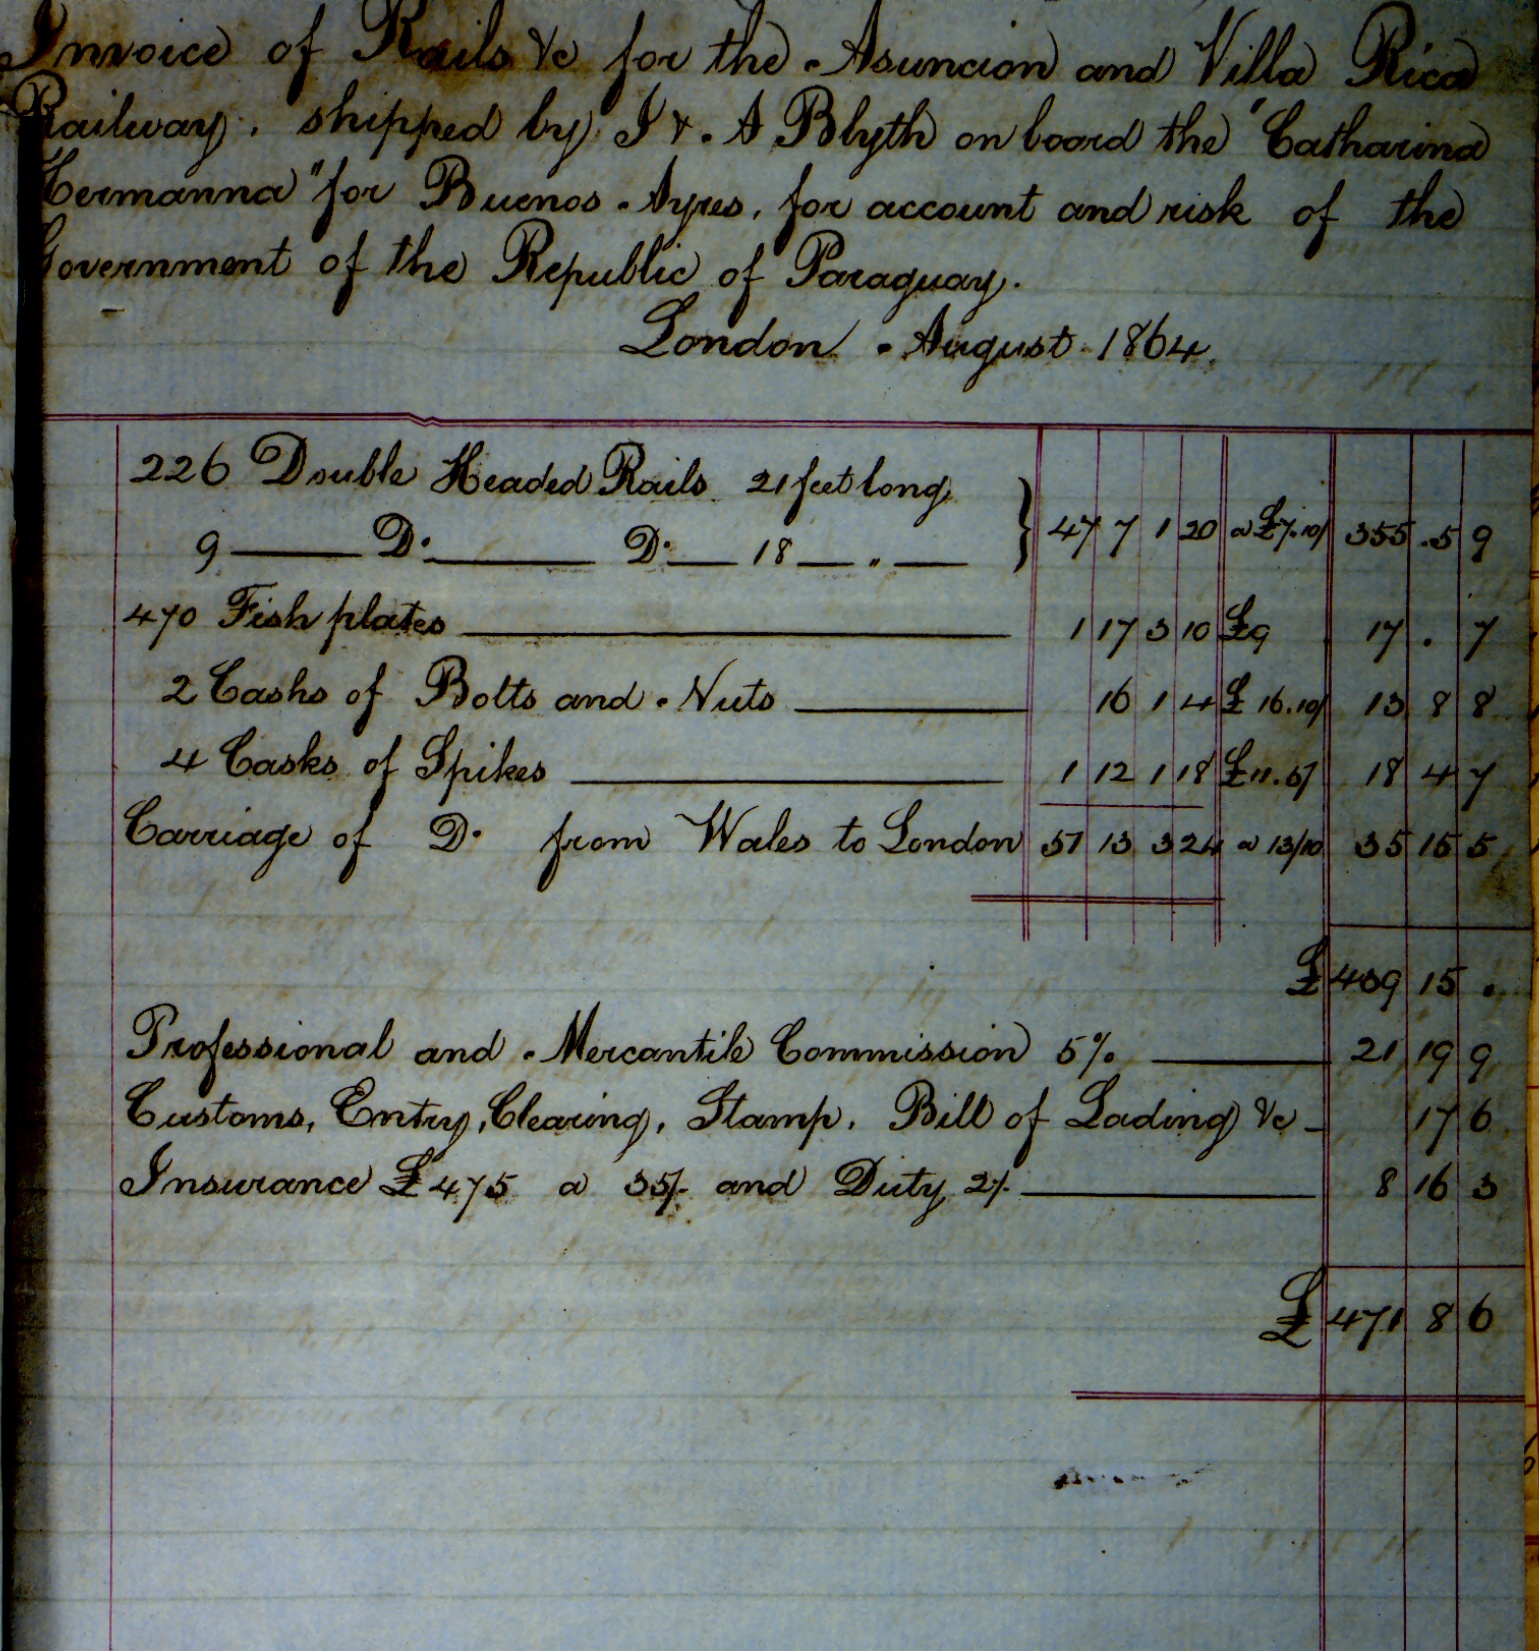 Invoice of Rails &c for the Asuncion and Villa Rica
Railway, shipped by J & A Blyth on board the "Catharina
Hermanna" for Buenos Ayres, for account and risk of the
Government of the Republic of Paraguay.
London August 1864.
226 Double Headed Rails 21 feet long
9 — Do. — Do. — 18 — " — } 47 7 1 20 a £7.10/ 355 . 5 9
470 Fish plates — 1 17 3 10 £9 17 . 7
2 Casks of Bolts and Nuts — 16 1 4 £16.10/ 13 8 8
4 Casks of Spikes — 1 12 1 18 £11.5/ 18 4 7
Carriage of Do. from Wales to London 51 13 3 24 a 13/10 35 15 5
£ 439 15 .
Professional and Mercantile Commission 5% — 21 19 9
Customs, Entry, Clearing, Stamp, Bill of Lading &c - 17 6
Insurance £475 a 35/- and Duty 2/- — 8 16 3
£ 471 8 6